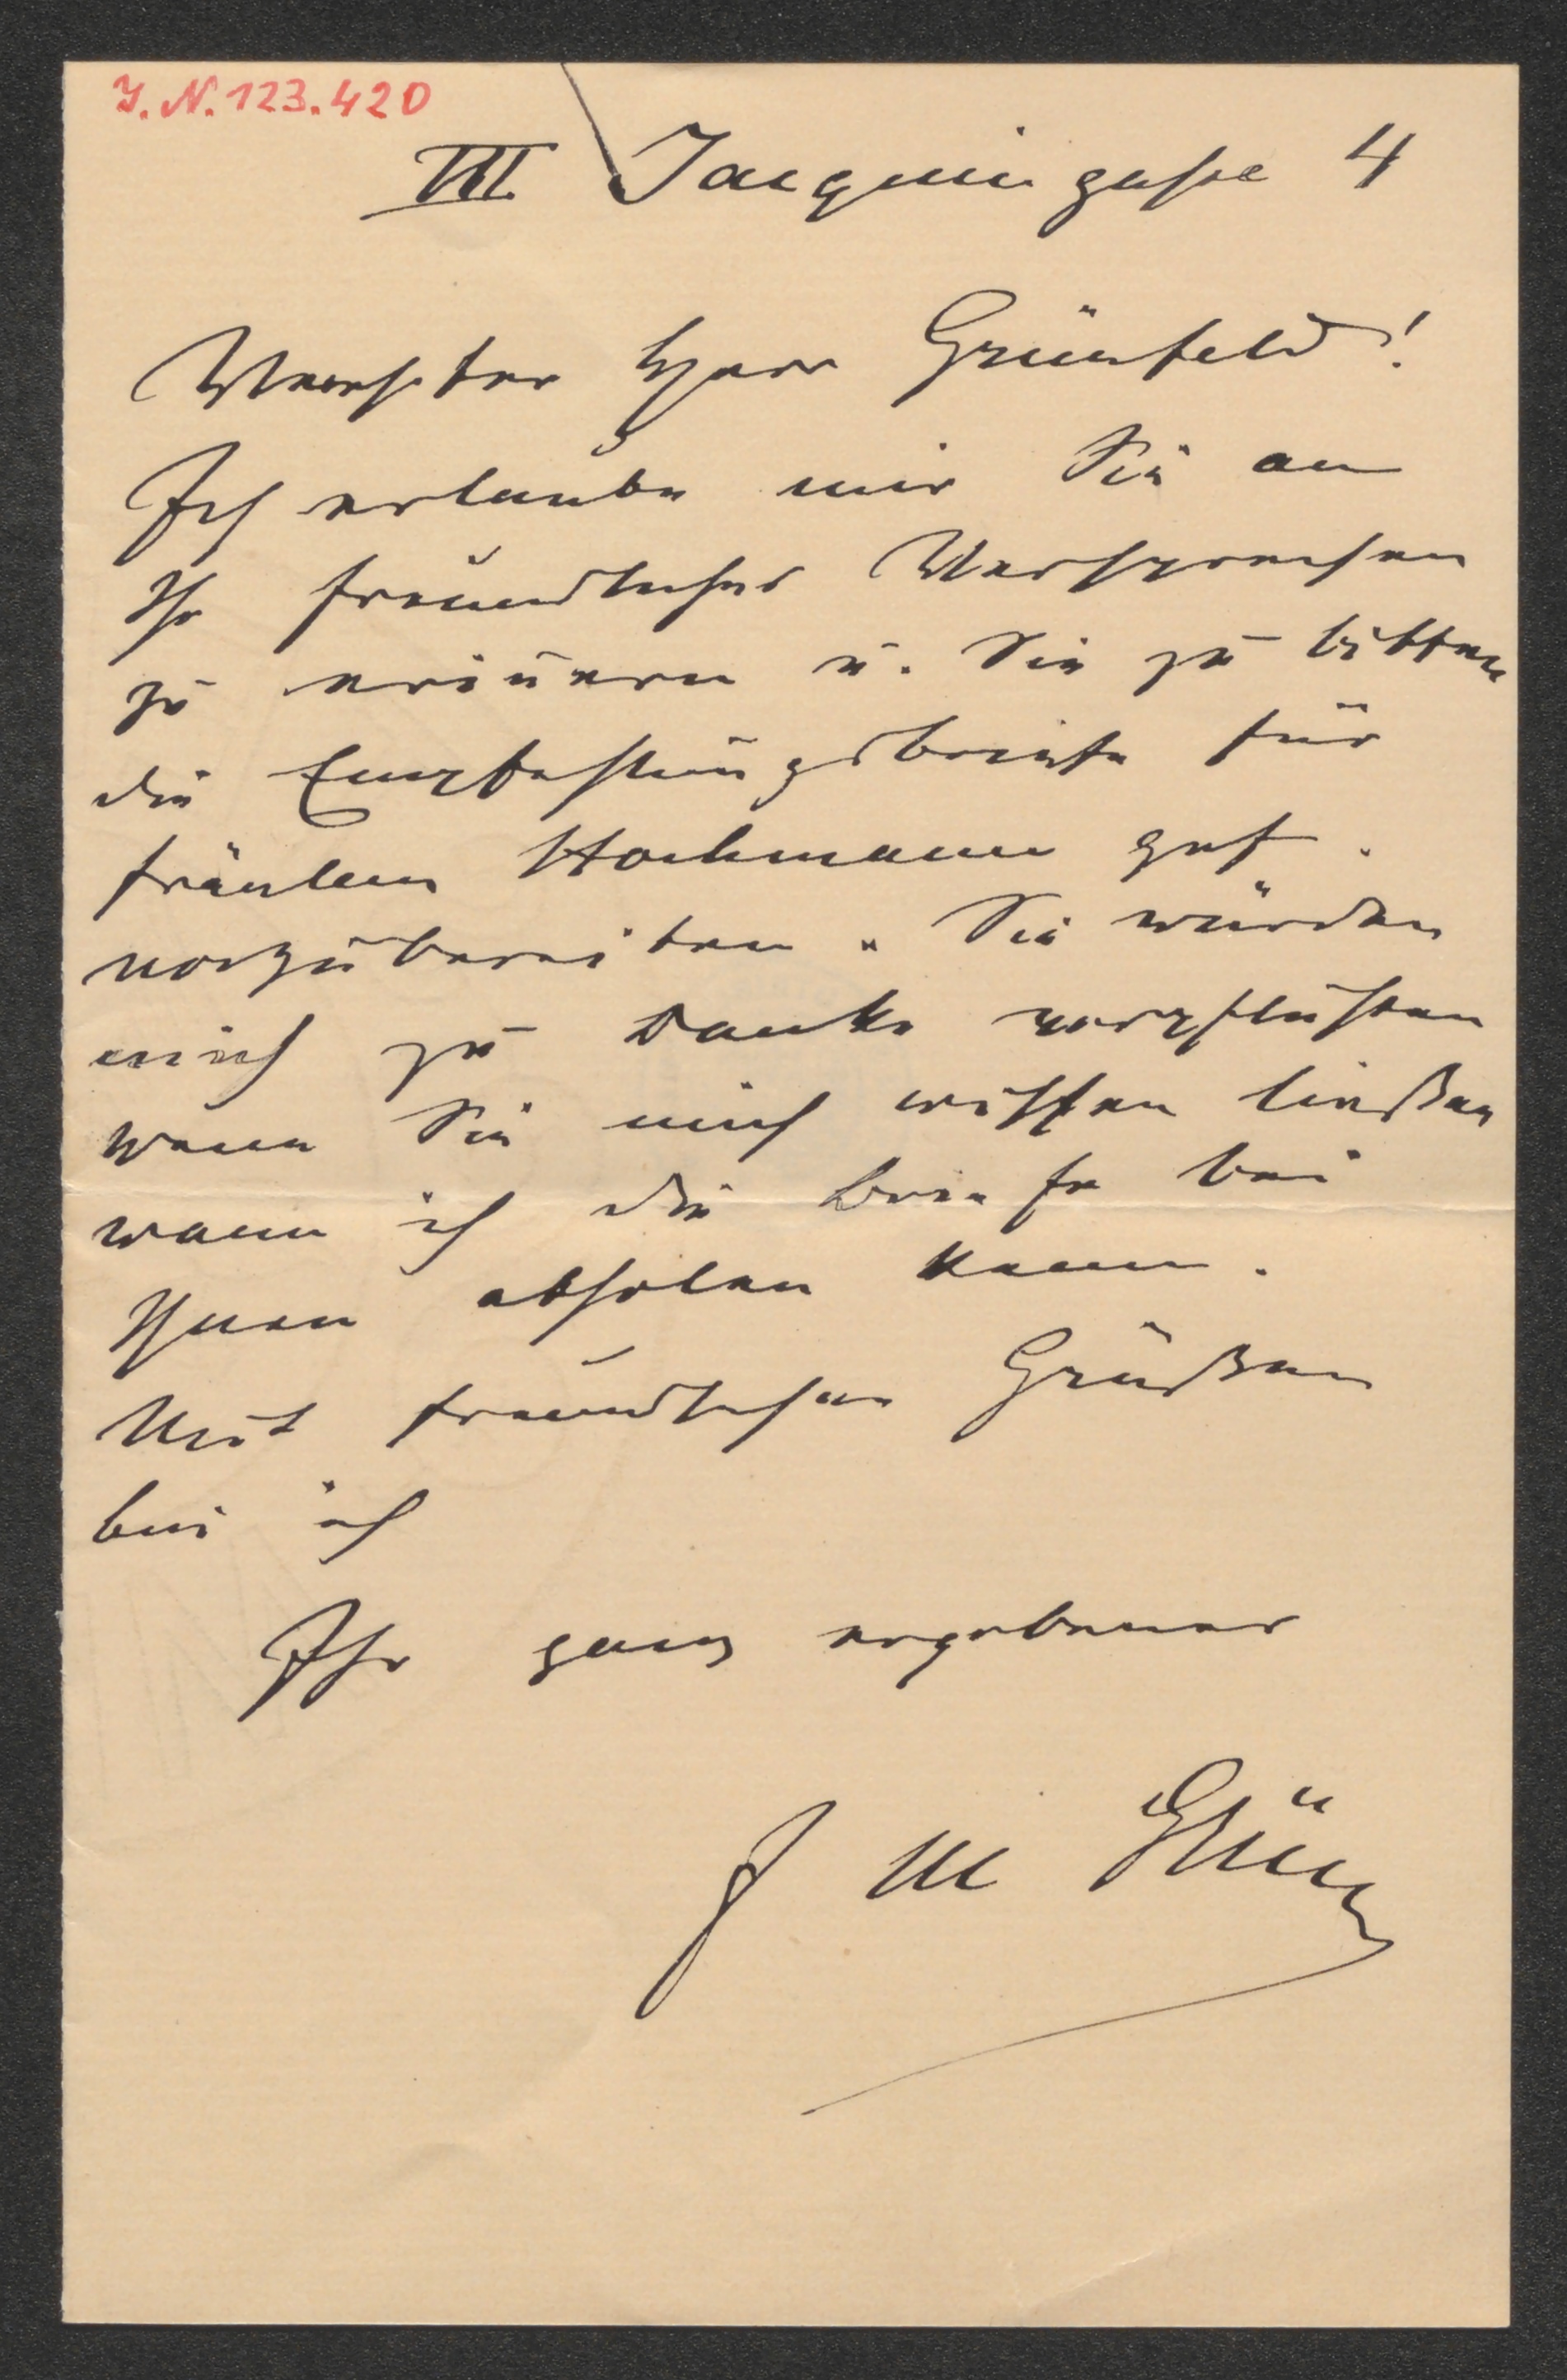 J.N. 123.420
III Jacquingasse 4
Verehrter Herr Grünfeld!
Ich erlaube mir Sie an
Ihr freundliches Versprechen
zu erinnern u. Sie zu bitten
die Empfehlungsbriefe für
Fräulein Hochmann gef.
vorzubereiten. Sie würden
mich zu Danke verpflichten
wenn Sie mich wissen ließen
wann ich die Briefe bei
Ihnen abholen kann.
Mit freundlichen Grüßen
bin ich
Ihr ganz ergebener
J M Grün